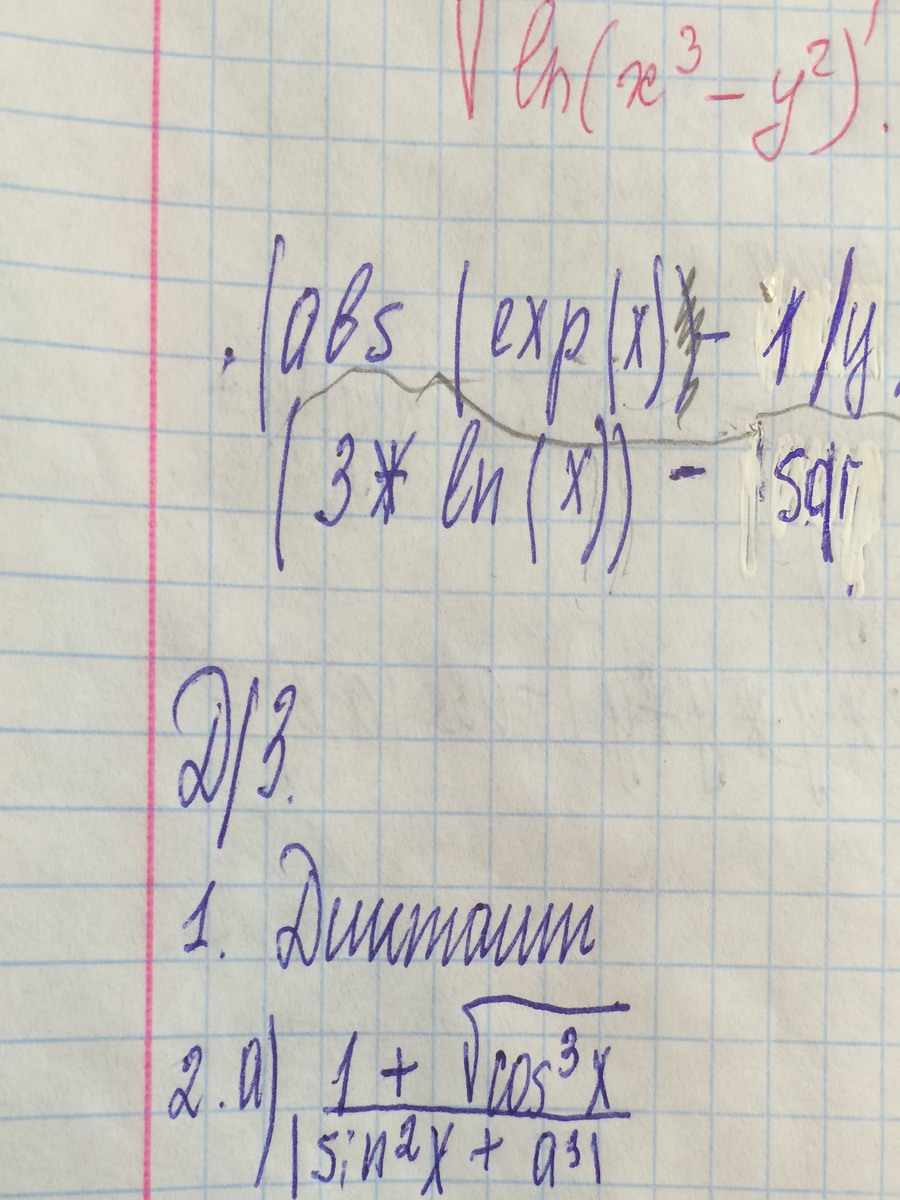 √ln(x³ - y²)
. (abs (exp(x) - 1/y
(3* ln(x)) - sqr
Д/З.
1. Диктант
2. а) 1 + √cos³x
|sin²x + a³|